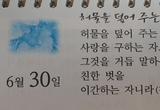 허물을 덮어 주는
허물을 덮어 주는
사랑을 구하는 자
그것을 거듭 말하
친한 벗을
이간하는 자니라
6월 30일